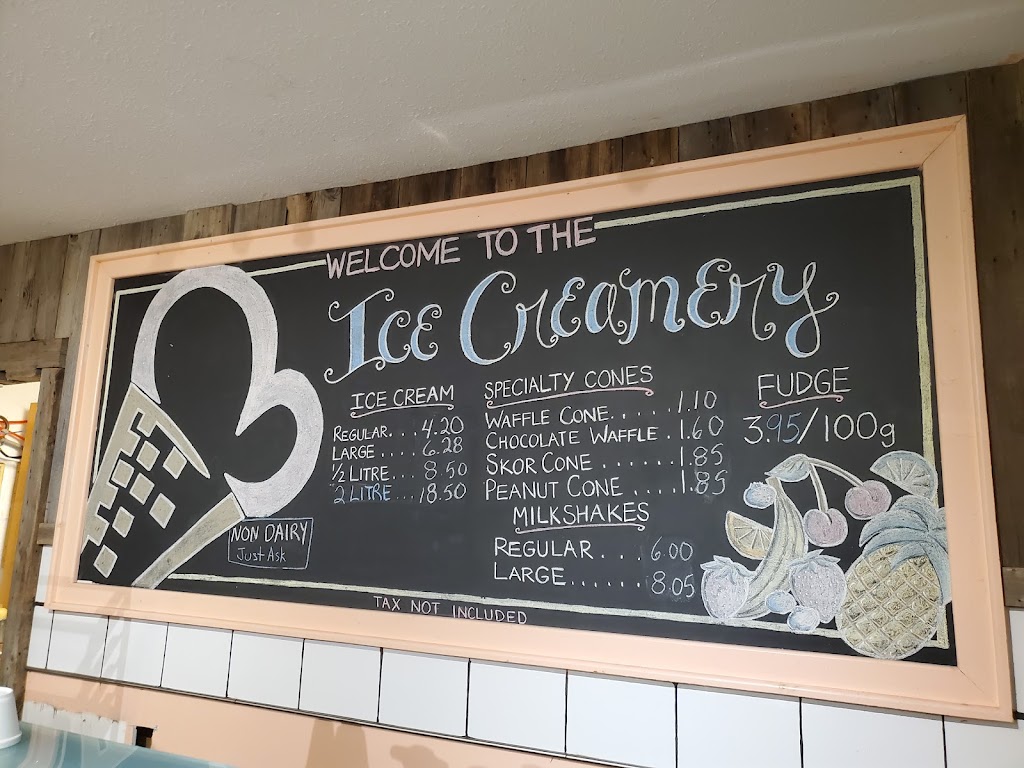 WELCOME TO THE
ICE CREAMERY
ICE CREAM
REGULAR... 4.20
LARGE.... 6.28
½ LITRE... 8.50
2 LITRE... 18.50
NON DAIRY
Just Ask
SPECIALTY CONES
WAFFLE CONE...... 1.10
CHOCOLATE WAFFLE . 1.60
SKOR CONE ...... 1.85
PEANUT CONE ..... 1.85
MILKSHAKES
REGULAR ... 6.00
LARGE...... 8.05
FUDGE
3.95/100g
TAX NOT INCLUDED